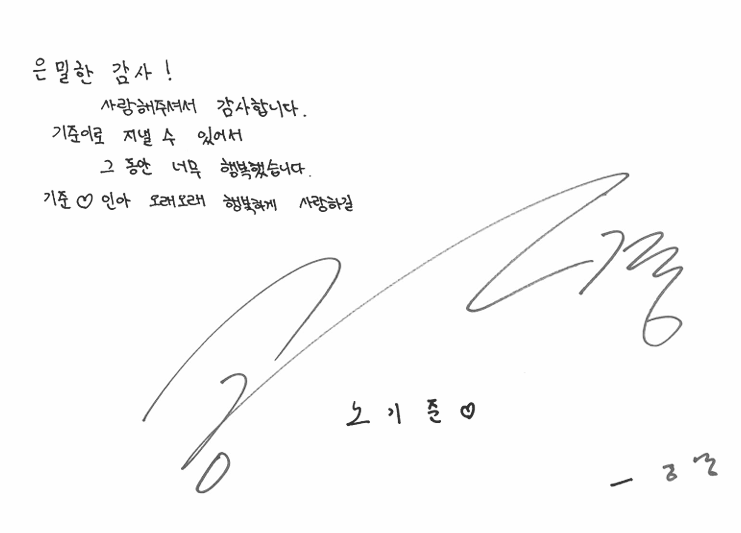 은밀한 감사!
사랑해주셔서 감사합니다.
기준이로 지낼 수 있어서
그 동안 너무 행복했습니다.
기준♡인아 오래오래 행복하게 사랑하길
노기준♡